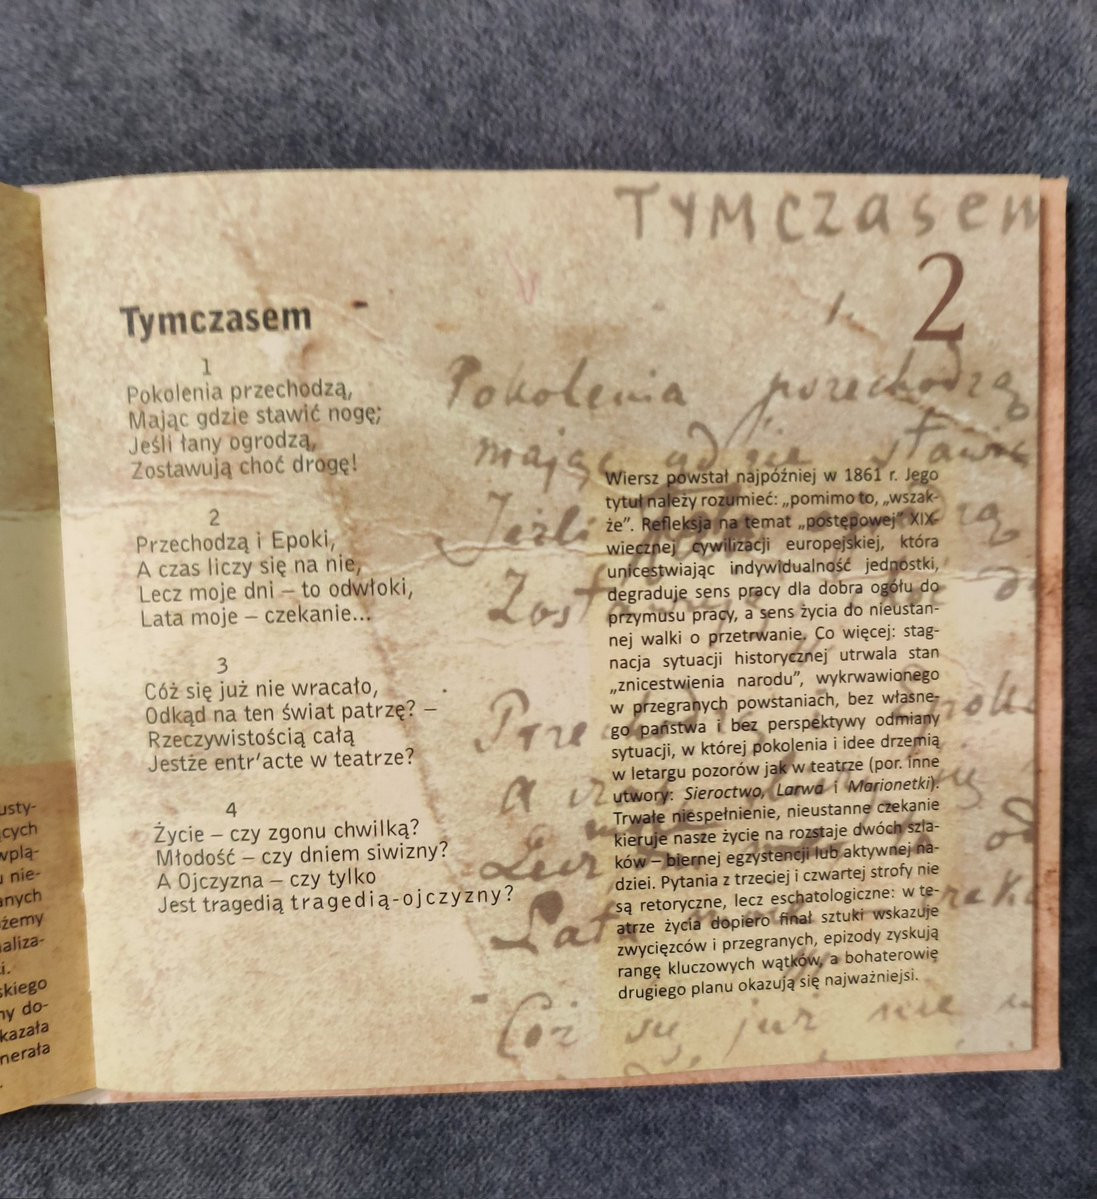 usty-
ących
wplą-
u nie-
anych
ożemy
naliza-
ci.
skiego
ny do-
kazała
nerała
Tymczasem
2
1.
Pokolenia przechodzą
mając gdzie stawić
Jeżli łany ogrodzą
Przechodzą i Epoki
a czas liczy się
Cóż się już nie w
Tymczasem
1
Pokolenia przechodzą,
Mając gdzie stawić nogę;
Jeśli łany ogrodzą,
Zostawują choć drogę!
2
Przechodzą i Epoki,
A czas liczy się na nie,
Lecz moje dni – to odwłoki,
Lata moje – czekanie...
3
Cóż się już nie wracało,
Odkąd na ten świat patrzę? –
Rzeczywistością całą
Jestże entr'acte w teatrze?
4
Życie – czy zgonu chwilką?
Młodość – czy dniem siwizny?
A Ojczyzna – czy tylko
Jest tragedią tragedią-ojczyzny?
Wiersz powstał najpóźniej w 1861 r. Jego
tytuł należy rozumieć: „pomimo to, „wszak-
że". Refleksja na temat „postępowej" XIX-
wiecznej cywilizacji europejskiej, która
unicestwiając indywidualność jednostki,
degraduje sens pracy dla dobra ogółu do
przymusu pracy, a sens życia do nieustan-
nej walki o przetrwanie. Co więcej: stag-
nacja sytuacji historycznej utrwala stan
„znicestwienia narodu", wykrwawionego
w przegranych powstaniach, bez własne-
go państwa i bez perspektywy odmiany
sytuacji, w której pokolenia i idee drzemią
w letargu pozorów jak w teatrze (por. inne
utwory: Sieroctwo, Larwa i Marionetki).
Trwałe niespełnienie, nieustanne czekanie
kieruje nasze życie na rozstaje dwóch szla-
ków – biernej egzystencji lub aktywnej na-
dziei. Pytania z trzeciej i czwartej strofy nie
są retoryczne, lecz eschatologiczne: w te-
atrze życia dopiero finał sztuki wskazuje
zwycięzców i przegranych, epizody zyskują
rangę kluczowych wątków, a bohaterowie
drugiego planu okazują się najważniejsi.